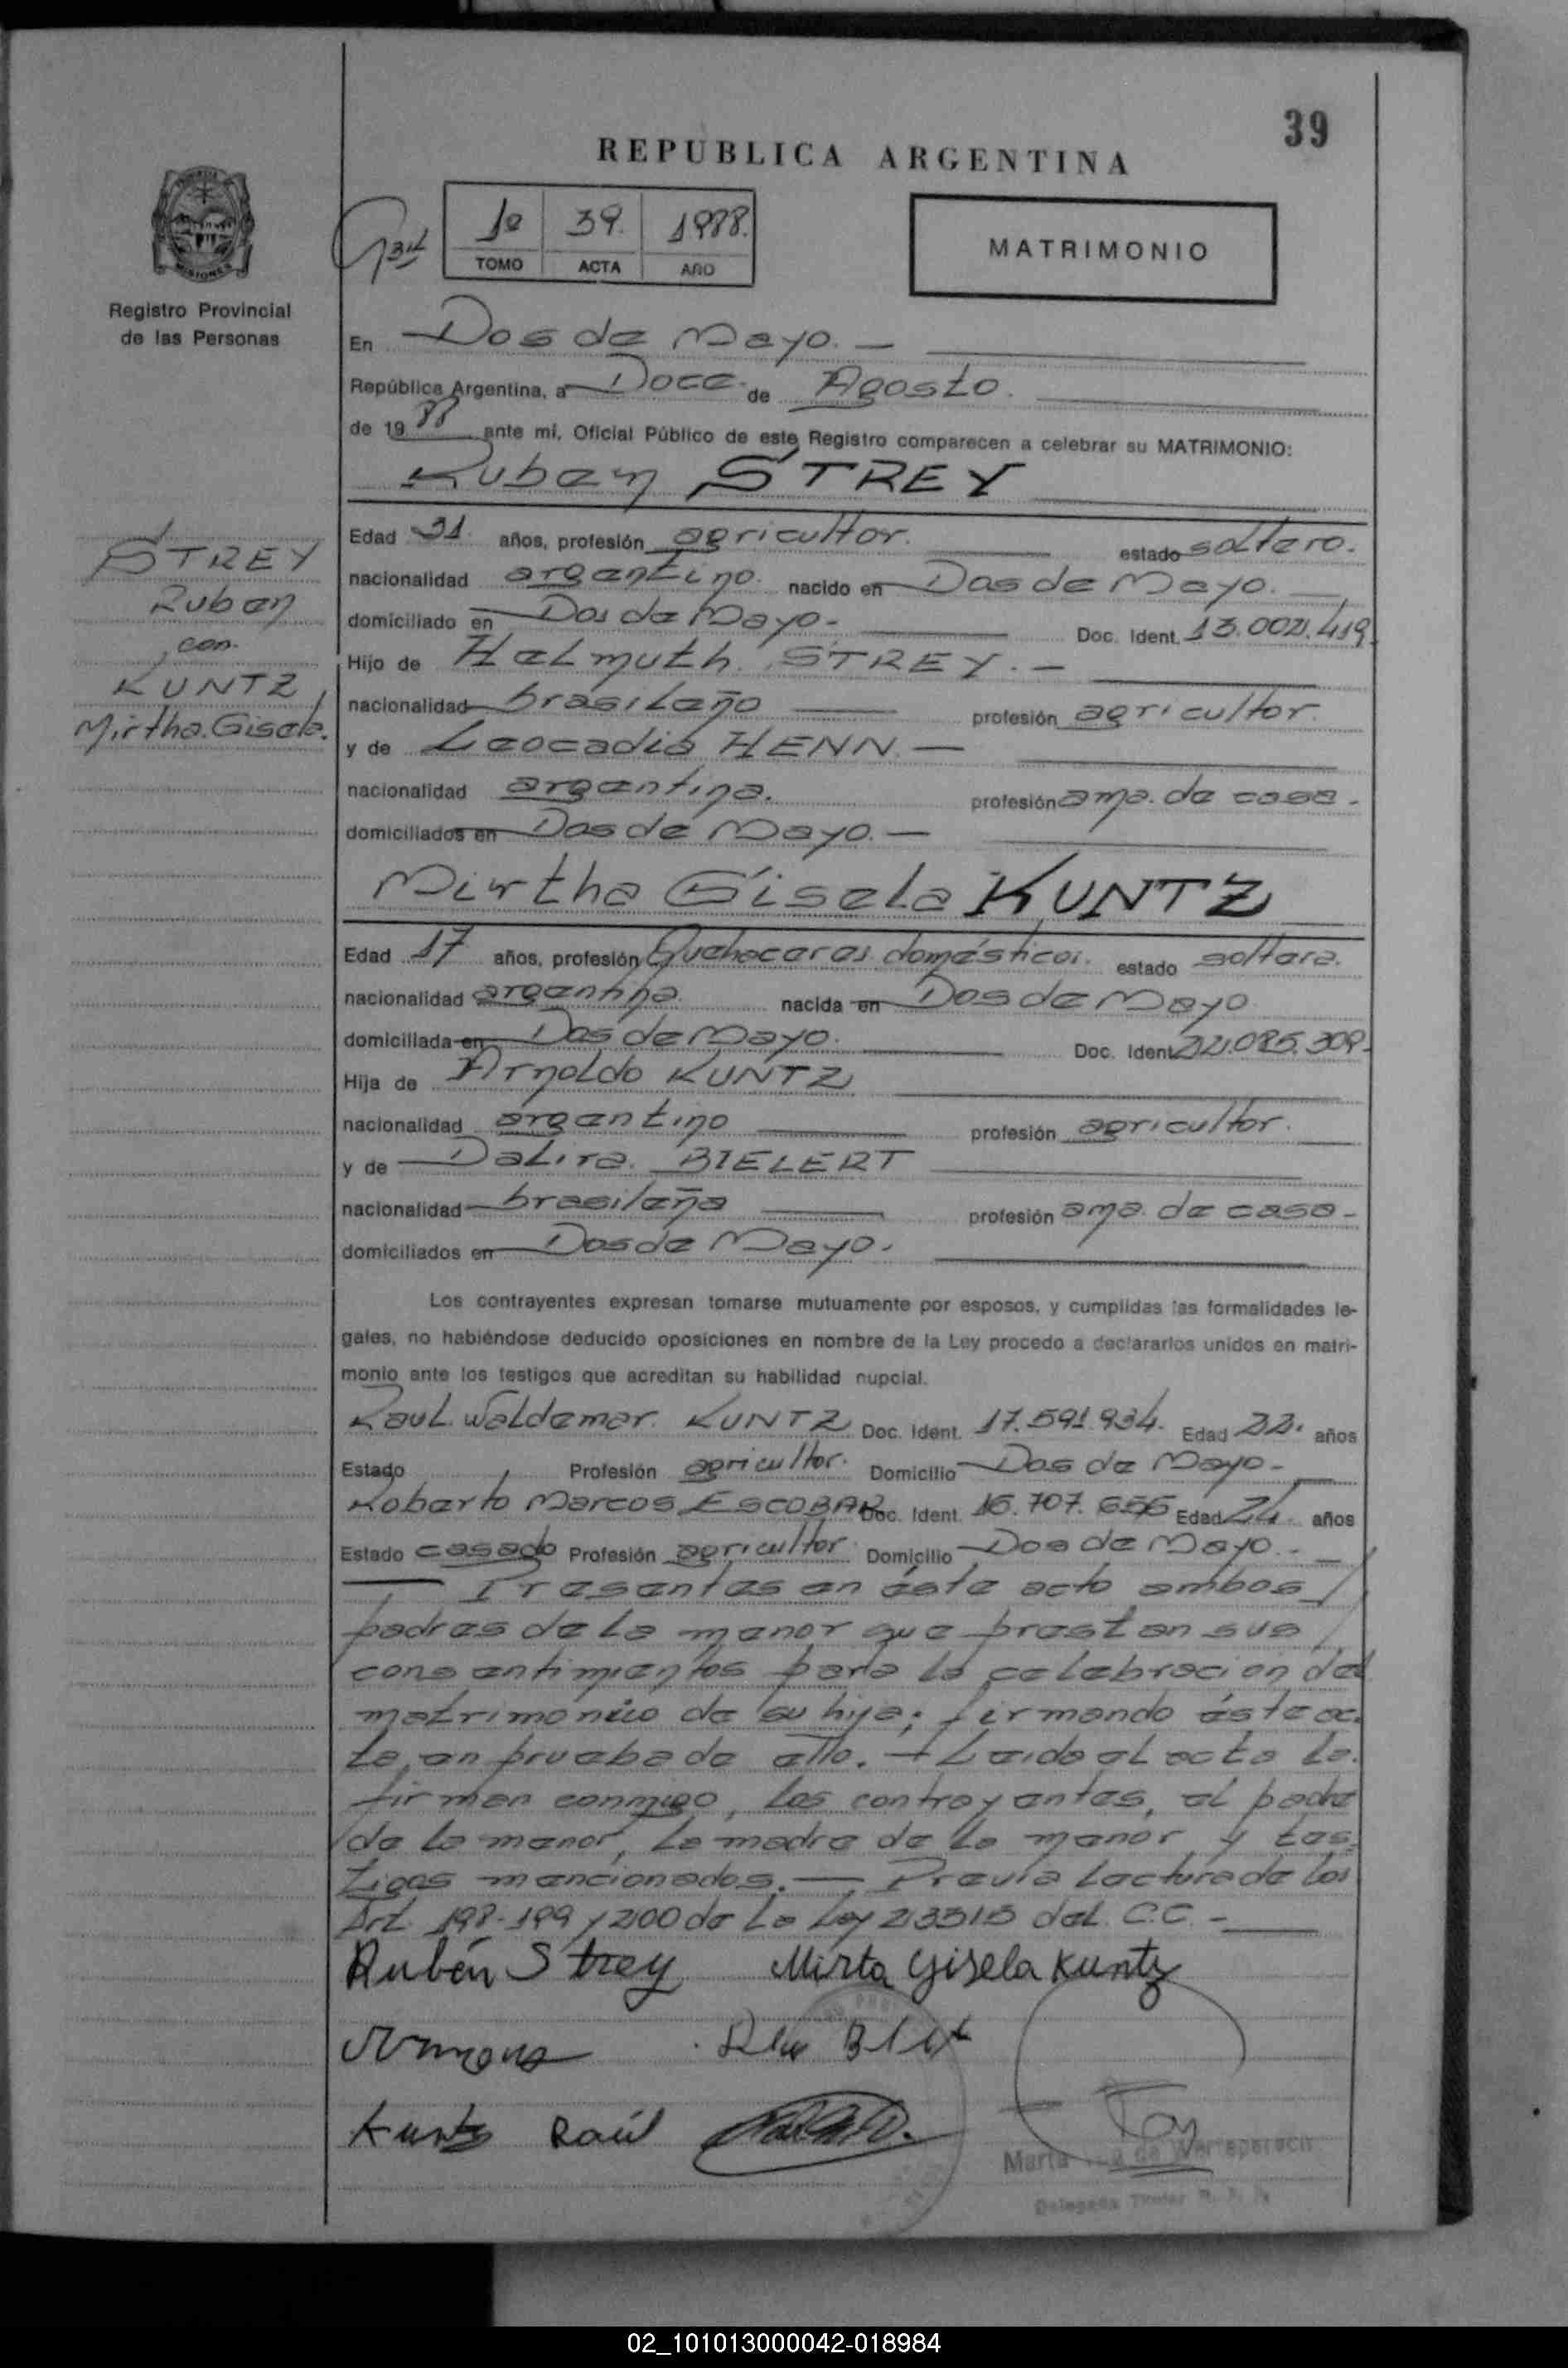 39
REPUBLICA ARGENTINA
1º 39. 1988.
TOMO ACTA AÑO
MATRIMONIO
MISIONES
Registro Provincial
de las Personas
En Dos de Mayo.—
República Argentina, a Doce de Agosto.
de 1988 ante mí, Oficial Público de este Registro comparecen a celebrar su MATRIMONIO:
Ruben STREY
STREY
Ruben
con.
KUNTZ,
Mirtha Gisela.
Edad 31 años, profesión agricultor. estado soltero.
nacionalidad argentino. nacido en Dos de Mayo.
domiciliado en Dos de Mayo- Doc. Ident. 13.002.419.
Hijo de Helmuth STREY.—
nacionalidad brasileño profesión agricultor.
y de Leocadia HENN.—
nacionalidad argentina. profesión ama de casa-
domiciliados en Dos de Mayo.—
Mirtha Gisela KUNTZ
Edad 17 años, profesión Quehaceres domésticos. estado soltera.
nacionalidad argentina nacida en Dos de Mayo
domiciliada en Dos de Mayo. Doc. Ident. 22.085.309.
Hija de Arnoldo KUNTZ
nacionalidad argentino profesión agricultor.
y de Dalira BIELERT
nacionalidad brasileña profesión ama de casa-
domiciliados en Dos de Mayo.
Los contrayentes expresan tomarse mutuamente por esposos, y cumplidas las formalidades le-
gales, no habiéndose deducido oposiciones en nombre de la Ley procedo a declararlos unidos en matri-
monio ante los testigos que acreditan su habilidad nupcial.
Raul Waldemar KUNTZ Doc. Ident. 17.591.934. Edad 22. años
Estado Profesión agricultor. Domicilio Dos de Mayo-
Roberto Marcos ESCOBAR Doc. Ident. 16.707.656 Edad 24 años
Estado casado Profesión agricultor Domicilio Dos de Mayo.-
— Presentes en éste acto ambos
padres de la menor que prestan sus
consentimientos para la celebracion del
matrimonio de su hija; firmando éste ac-
ta en prueba de ello.— Leida el acta la
firman conmigo, los contrayentes, el padre
de la menor, la madre de la menor y tes-
tigos mencionados.— Previa lectura de los
Art. 198-199 y 200 de la Ley 23515 del C.C.-
Rubén Strey Mirta Gisela Kuntz
Kuntz Raúl
Marta de
Delegada Titular R. P. P.
02_101013000042-018984